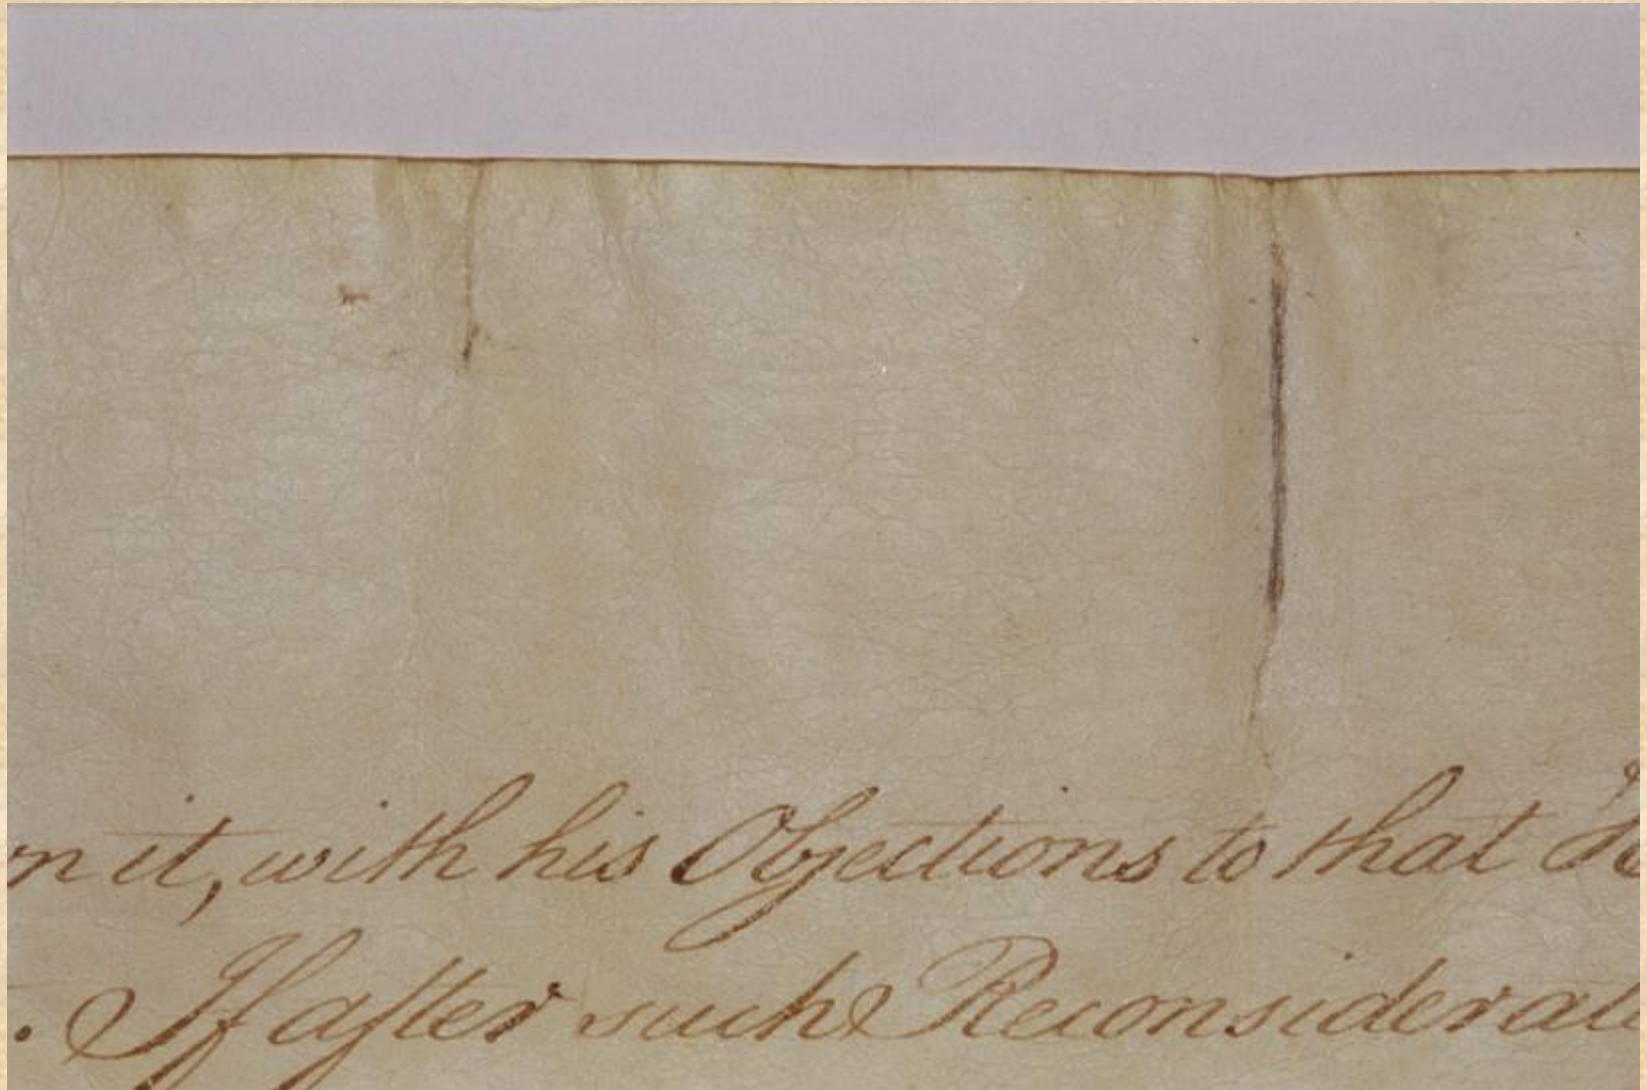 n it, with his Objections to that
. If after such Reconsiderat